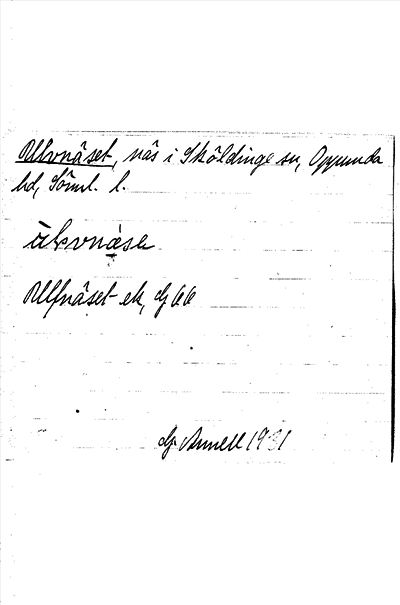 Ulvnäset, näs i Sköldinge sn, Oppunda
hd, Söml. l.
ŭlvnä̀sə
Ulfnäset ek, dj 66
Gj. Annell 1931